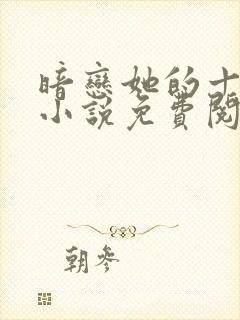 暗戀她的十
小說免費閱
朝參